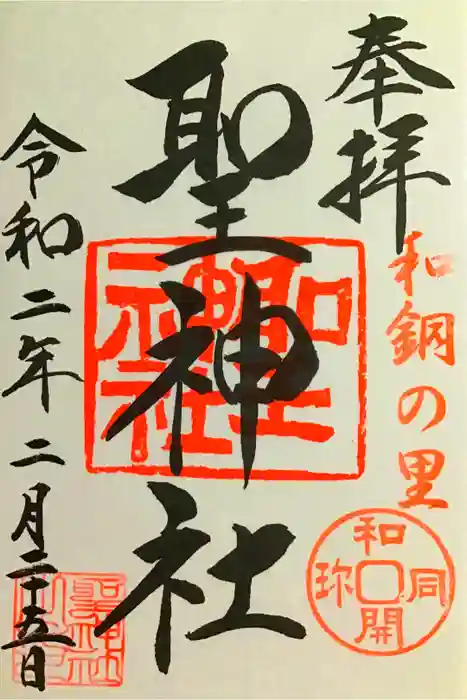 奉拝
和銅の里
和同開珎
聖神社
聖神社
令和二年二月二十五日